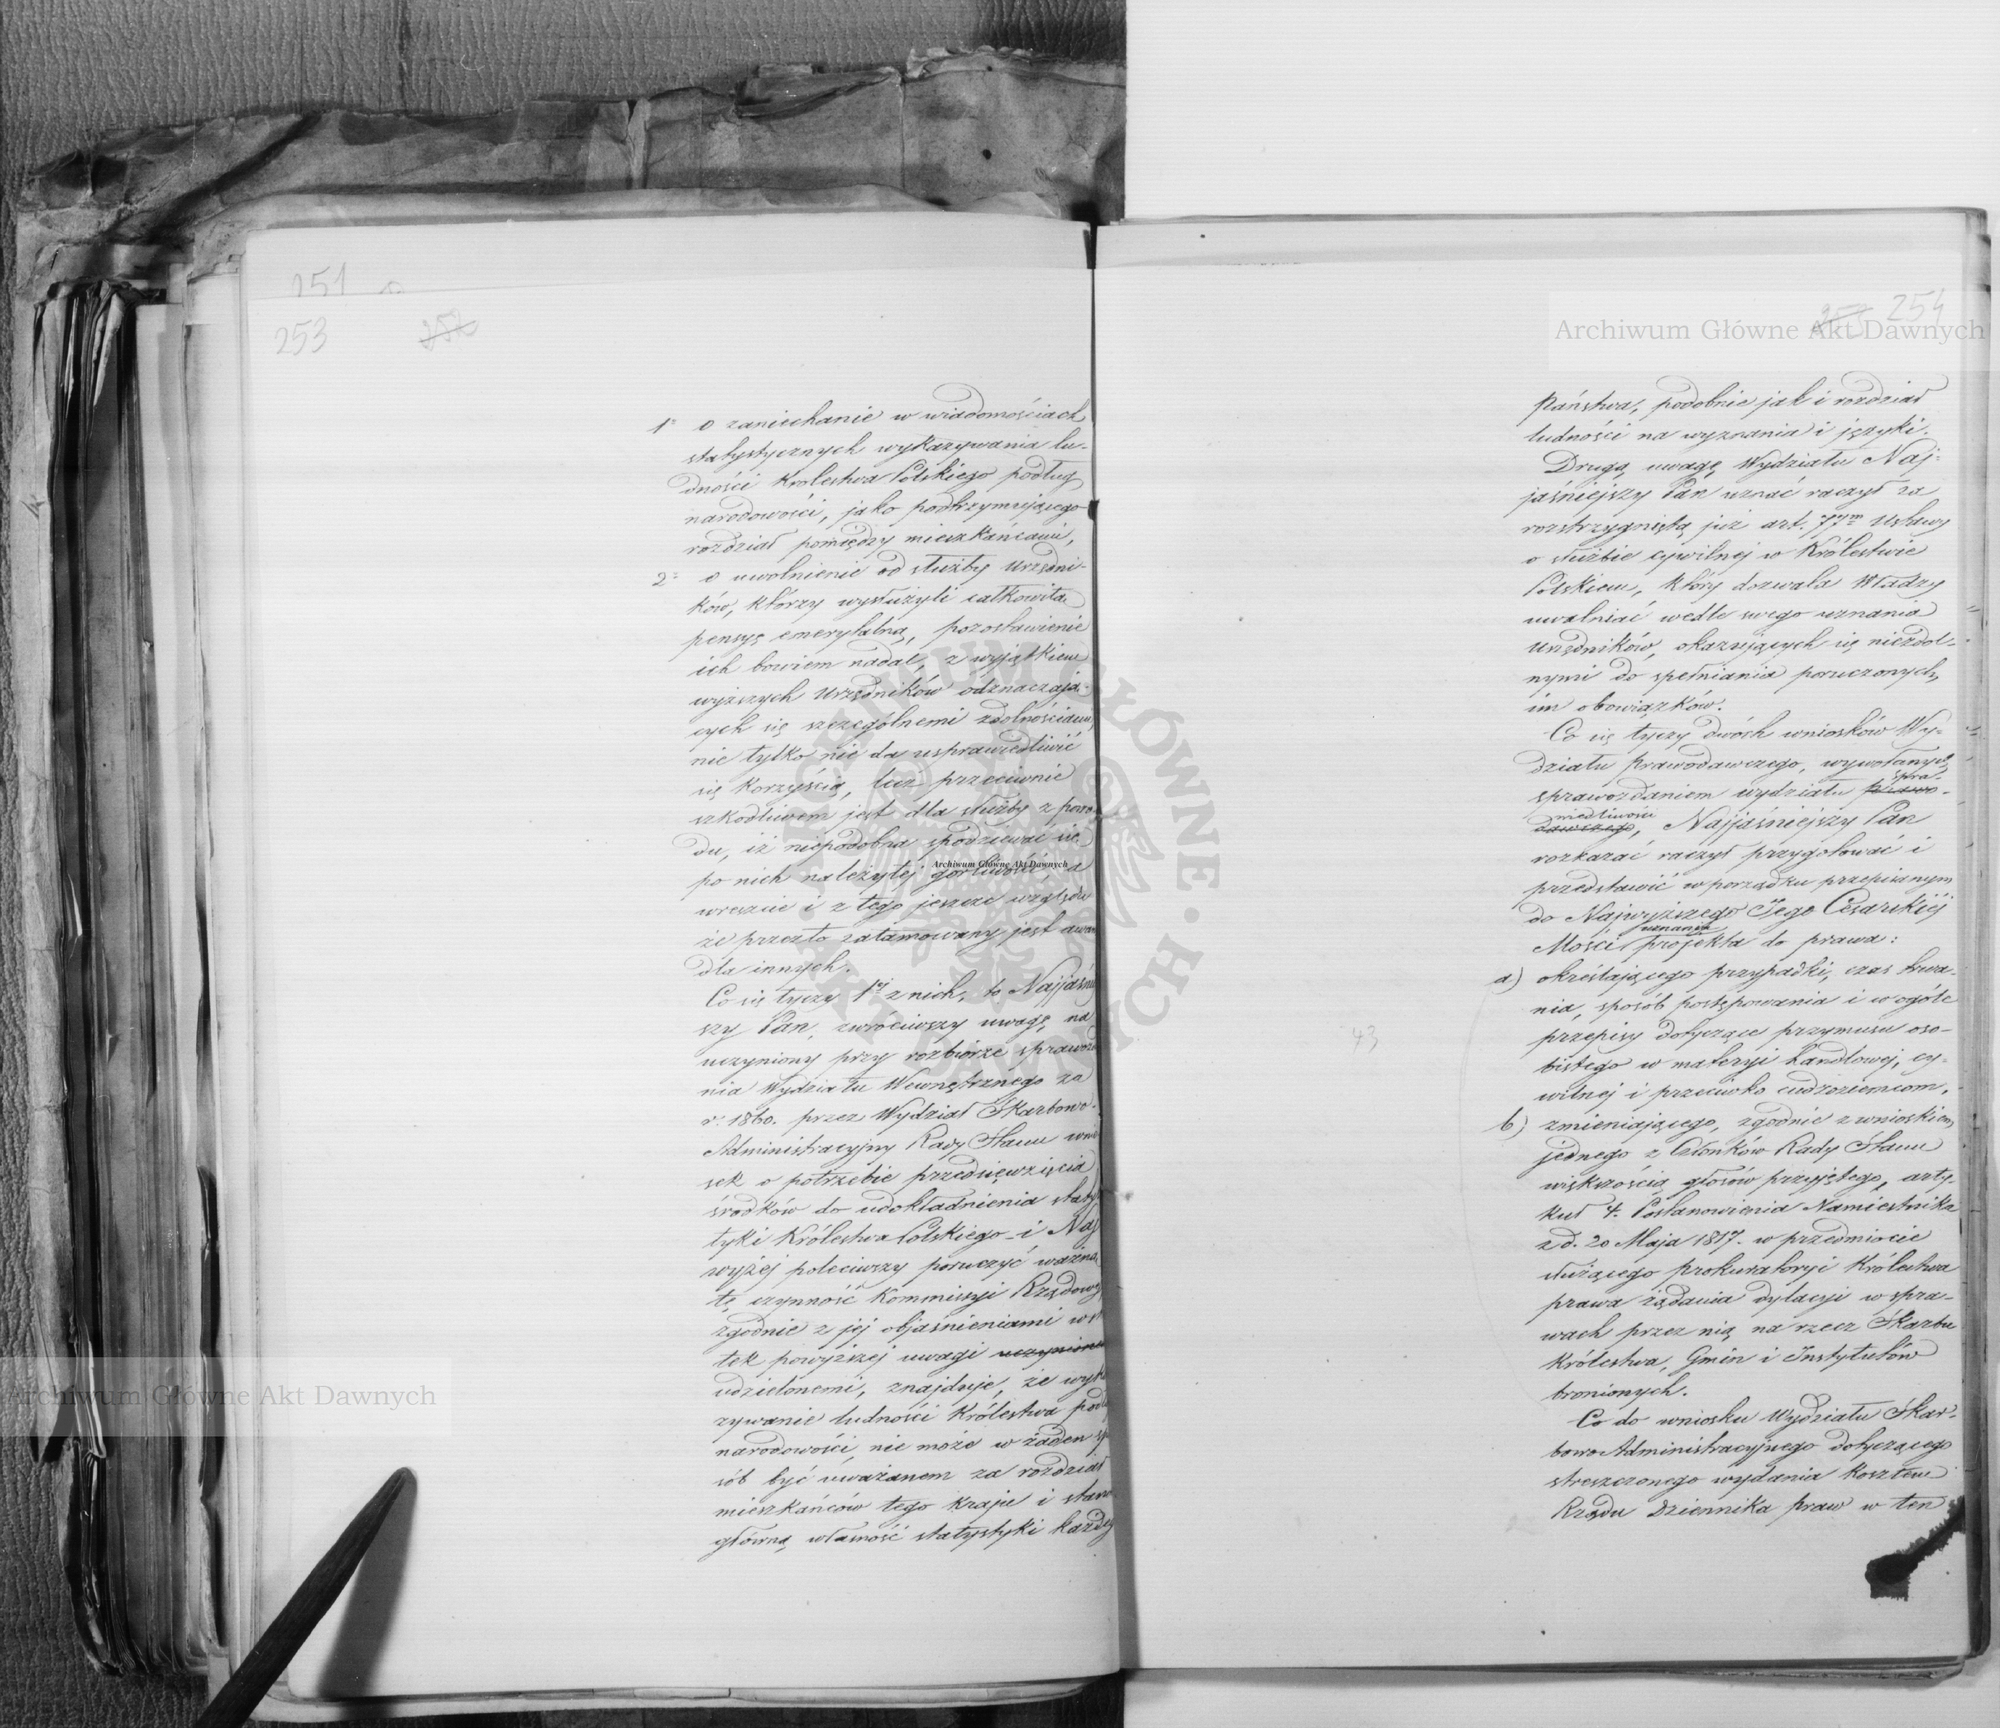 251
253 252
1º o zaniechanie w wiadomościach
statystycznych wykazywania lu-
dności Królestwa Polskiego podług
narodowości, jako podtrzymującego
rozdział pomiędzy mieszkańcami,
2º o uwolnienie od służby Urzędni-
ków, którzy wysłużyli całkowitą
pensyę emerytalną, pozostawienie
ich bowiem nadal, z wyjątkiem
wyższych Urzędników odznaczają-
cych się szczególnemi zdolnościami,
nie tylko nie da usprawiedliwić
się korzyścią, lecz przeciwnie
szkodliwem jest dla służby z powo
du, iż niepodobna spodziewać się
po nich należytej gorliwości, a
wreszcie i z tego jeszcze względu
że przez to zatamowany jest awans
dla innych.
Co się tyczy 1ej z nich, to Najjaśniej
szy Pan, zwróciwszy uwagę na
uczyniony przy rozbiorze sprawozda
nia Wydziału Wewnętrznego za
r. 1860. przez Wydział Skarbowo-
Administracyjny Rady Stanu wnio
sek o potrzebie przedsięwzięcia
środków do udokładnienia staty
tyki Królestwa Polskiego i Naj
wyżej poleciwszy poruczyć ważną
tę czynność Kommissyi Rządowej
zgodnie z jej objaśnieniami w sk
tek powyższej uwagi uczynione
udzielonemi, znajduje, że wyka
zywanie ludności Królestwa podłu
narodowości, nie może w żaden sp
sób być uważanem za rozdział
mieszkańców tego kraju i stano
główną własność statystyki każdeg
253 254
Państwa, podobnie jak i rozdział
ludności na wyznania i języki.
Drugą uwagę Wydziału Naj-
jaśniejszy Pan uznać raczył za
rozstrzygniętą już art. 77m Ustawy
o służbie cywilnej w Królestwie
Polskiem, który dozwala Władzy
uwalniać wedle swego uznania
Urzędników, okazujących się niezdol-
nymi do spełniania poruczonych
im obowiązków.
Co się tyczy dwóch wniosków Wy-
działu Prawodawczego, wywołanych
sprawozdaniem wydziału prawo- spra-
dawczego wiedliwości, Najjaśniejszy Pan
rozkazać raczył przygotować i
przedstawić w porządku przepisanym
do Najwyższego Jego Cesarskiej
Mości uznania projekta do prawa:
a) określającego przypadki, czas trwa-
nia, sposób postępowania i w ogóle
przepisy dotyczące przymusu oso-
bistego w materyi handlowej, cy-
wilnej i przeciwko cudzoziemcom,
b) zmieniającego, zgodnie z wnioskiem
jednego z Członków Rady Stanu
większością głosów przyjętego, arty-
kuł 4. Postanowienia Namiestnika
z d. 20 Maja 1817. w przedmiocie
służącego Prokuratoryi Królestwa
prawa żądania dylacyi w spra-
wach przez nią na rzecz Skarbu
Królestwa, Gmin i Instytutów
bronionych.
Co do wniosku Wydziału Skar-
bowo Administracyjnego dotyczącego
streszczonego wydania kosztem
Rządu Dziennika praw w ten
43
Archiwum Główne Akt Dawnych
Archiwum Główne Akt Dawnych
Archiwum Główne Akt Dawnych
ARCHIWUM GŁÓWNE AKT DAWNYCH